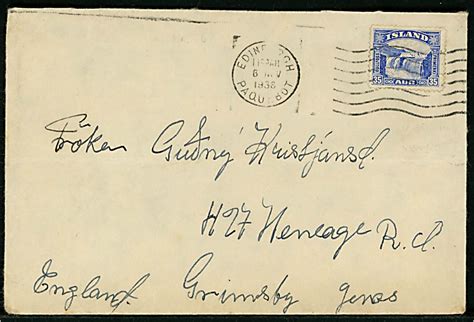 EDINBURGH
6 NOV
1938
PAQUEBOT
ISLAND
35 AUR 35
Fröken Guðný Kristjánsd.
H27 Heneage R.d.
England. Grimsby